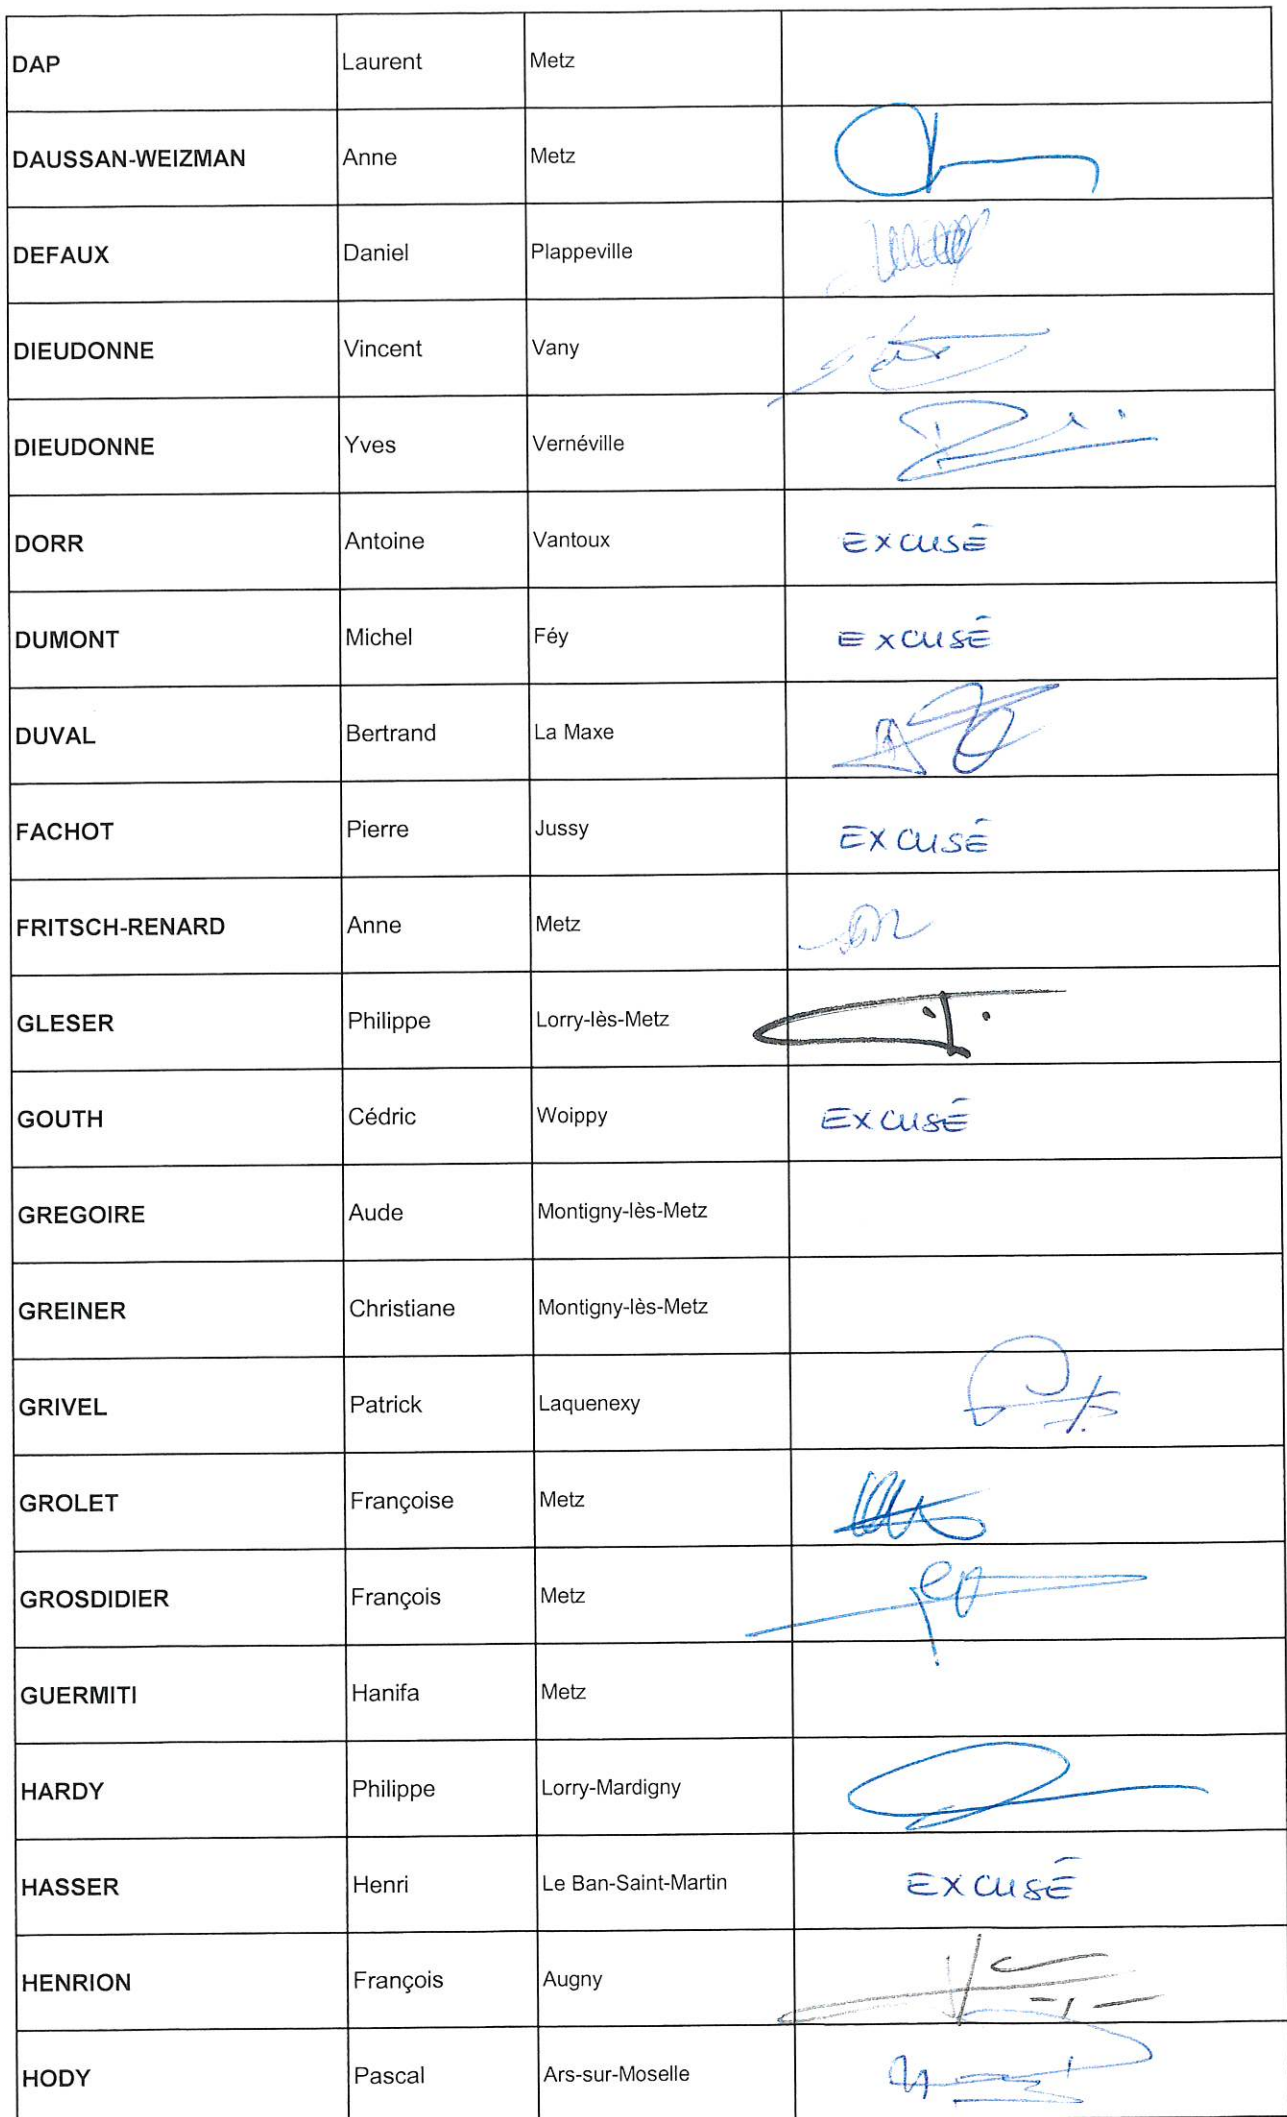 DAP Laurent Metz
DAUSSAN-WEIZMAN Anne Metz
DEFAUX Daniel Plappeville
DIEUDONNE Vincent Vany
DIEUDONNE Yves Vernéville
DORR Antoine Vantoux EXCUSÉ
DUMONT Michel Féy EXCUSÉ
DUVAL Bertrand La Maxe
FACHOT Pierre Jussy EXCUSÉ
FRITSCH-RENARD Anne Metz
GLESER Philippe Lorry-lès-Metz
GOUTH Cédric Woippy EXCUSÉ
GREGOIRE Aude Montigny-lès-Metz
GREINER Christiane Montigny-lès-Metz
GRIVEL Patrick Laquenexy
GROLET Françoise Metz
GROSDIDIER François Metz
GUERMITI Hanifa Metz
HARDY Philippe Lorry-Mardigny
HASSER Henri Le Ban-Saint-Martin EXCUSÉ
HENRION François Augny
HODY Pascal Ars-sur-Moselle